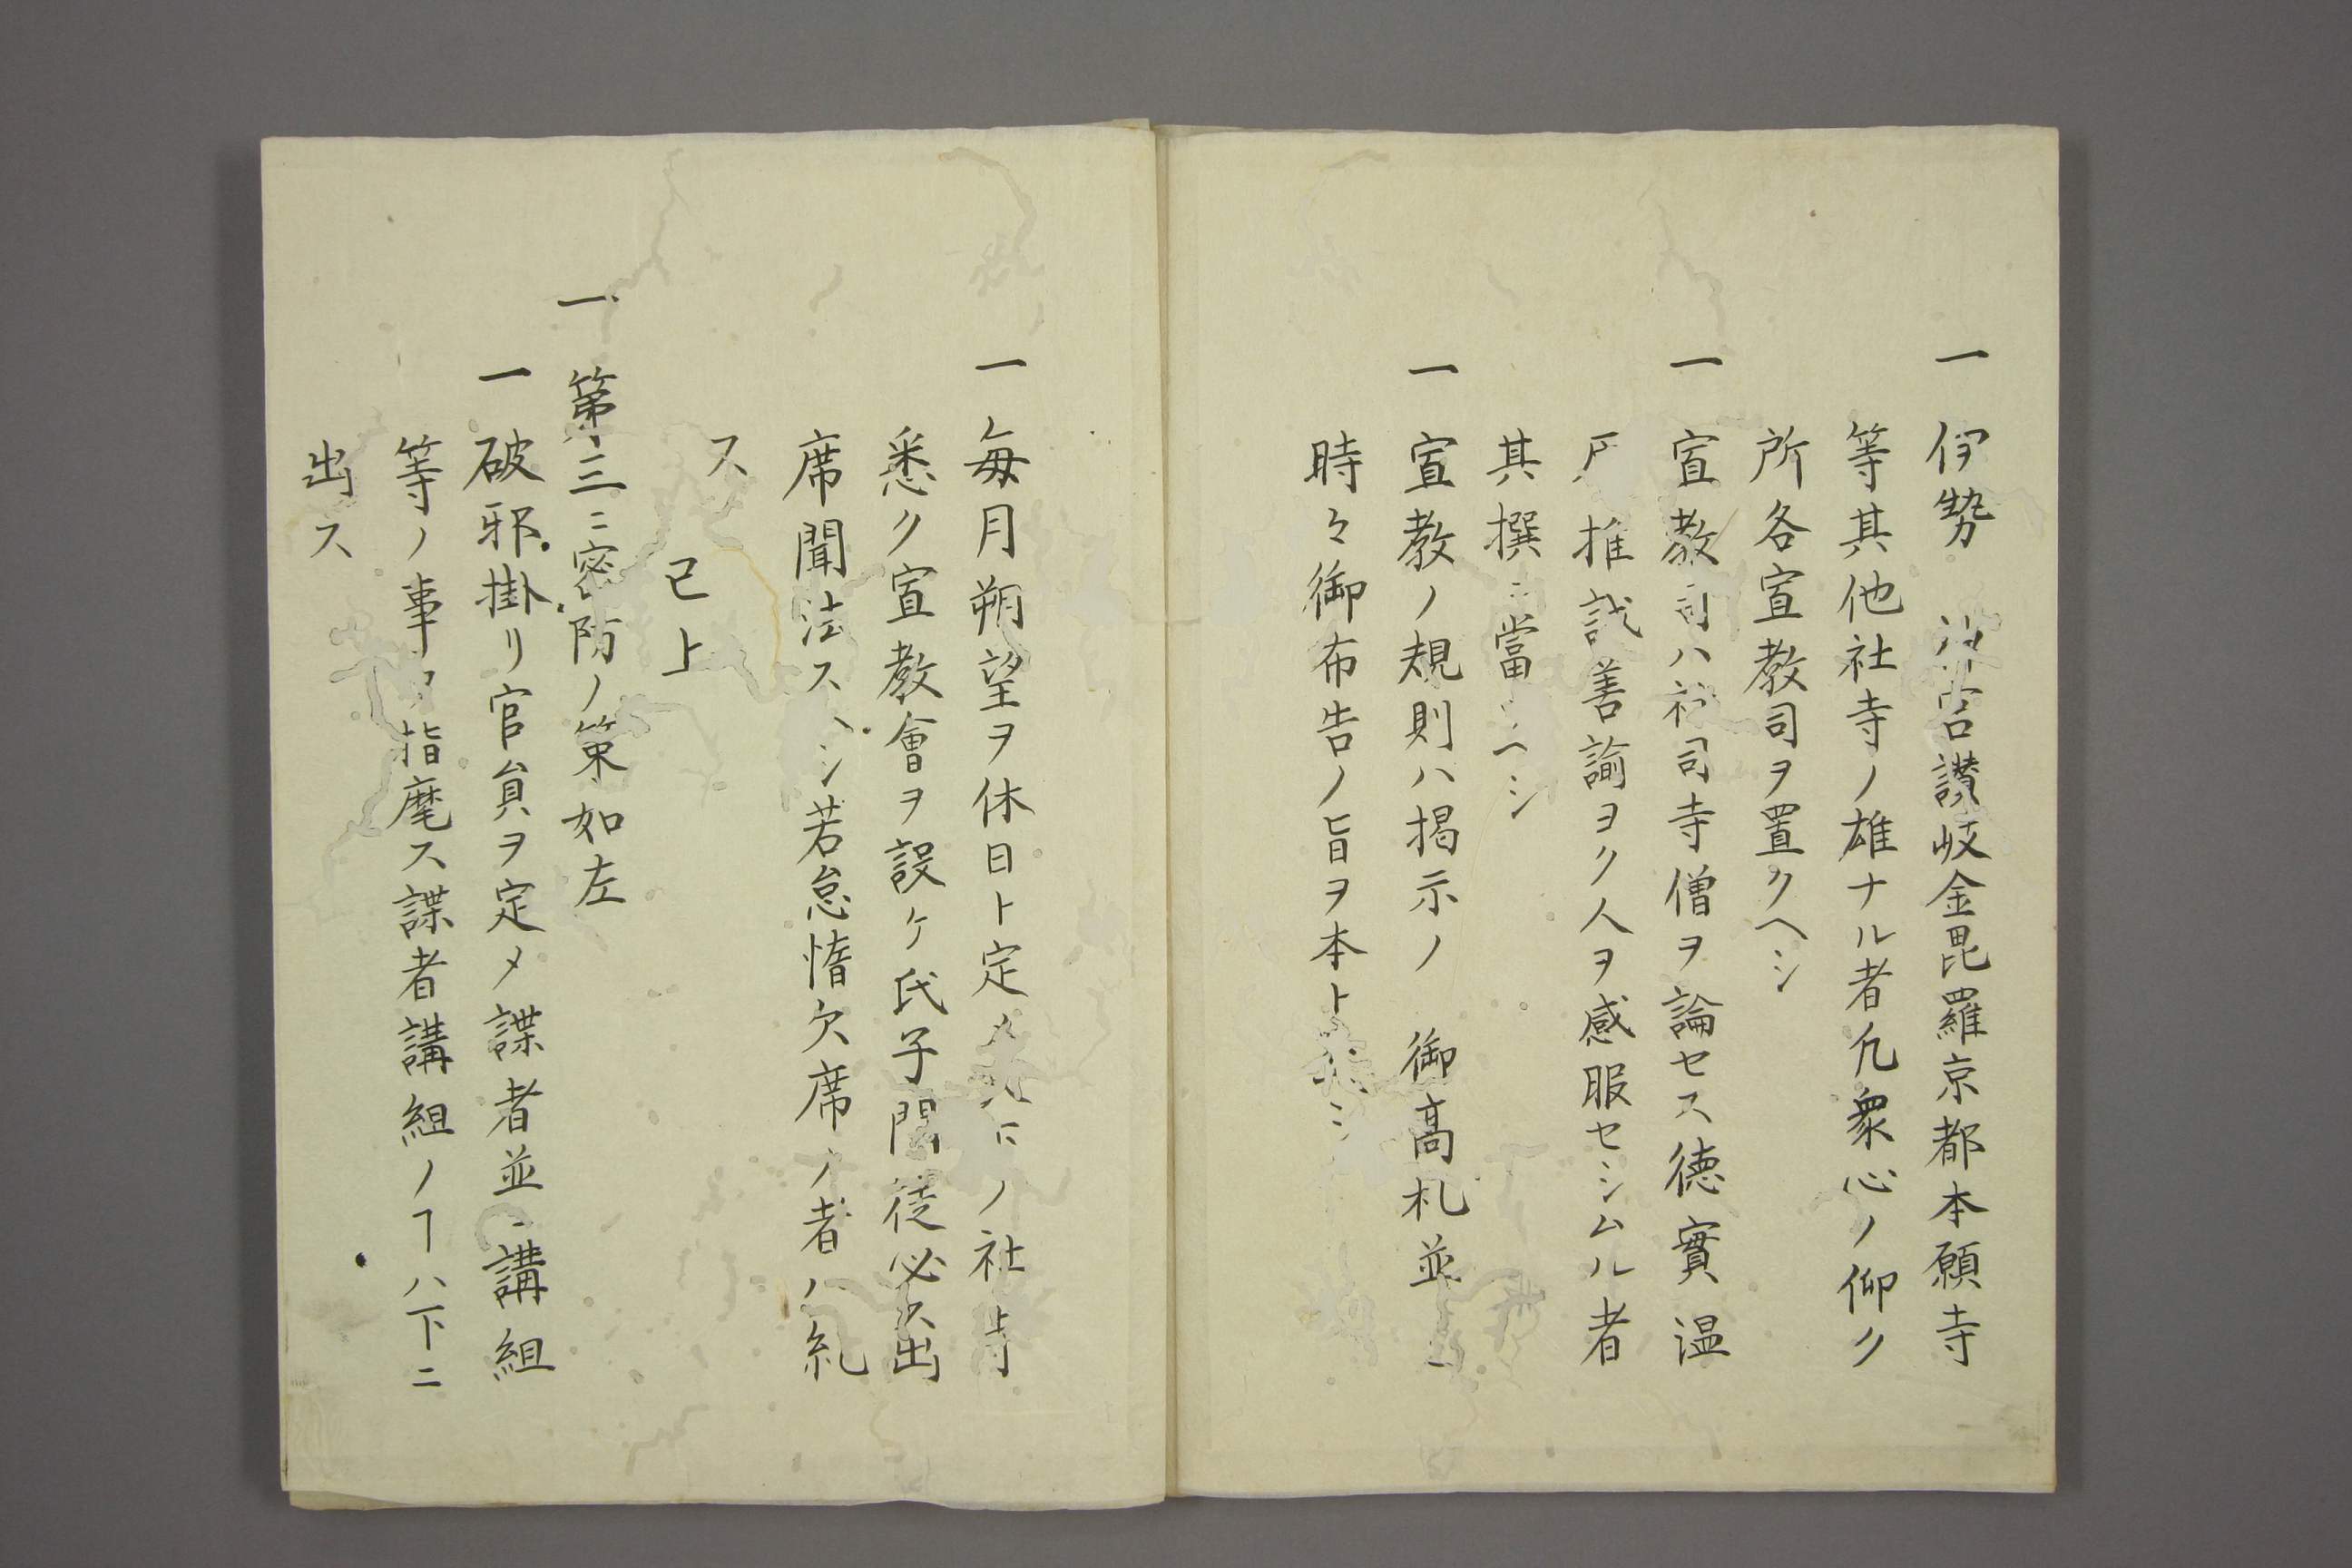 一伊勢 神宮讃岐金毘羅京都本願寺
等其他社寺ノ雄ナル者凡衆心ノ仰ク
所各宣教司ヲ置クヘシ
一宣教司ハ社司寺僧ヲ論セス徳實温
推誠善諭ヨク人ヲ感服セシムル者
其撰ニ當ヘシ
一宣教ノ規則ハ掲示ノ 御高札並ニ
時々御布告ノ旨ヲ本トシ
一毎月朔望ヲ休日ト定メ ノ社寺
悉ク宣教會ヲ設ケ氏子門徒必ス出
席聞法スヘシ若怠惰欠席ノ者ハ糺
ス
已上
一第三ニ密防ノ策如左
一破邪掛リ官員ヲ定メ諜者並ニ講組
等ノ事ヲ指麾ス諜者講組ノヿハ下ニ
出ス